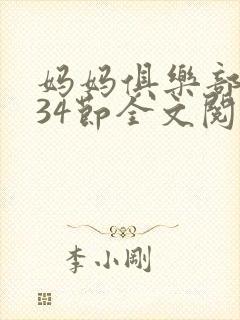 妈妈俱樂部
34節全文閱
李小剛